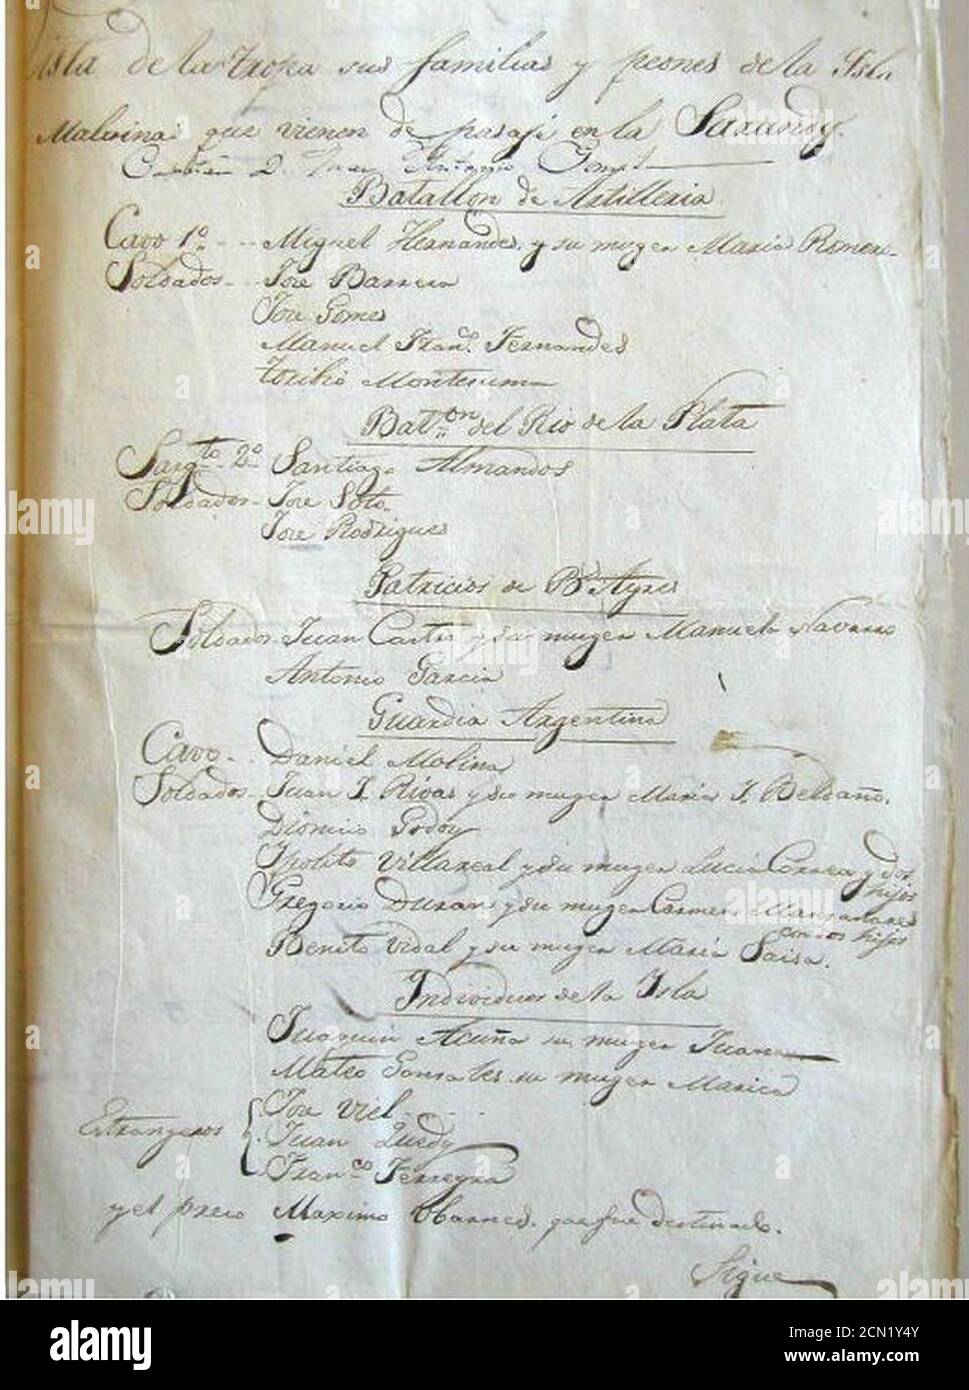 Lista de la tropa sus familias y peones de la Isla
Malvina que vienen de pasaje en la Sarandy.
Capitan D. Juan Antonio Gomila
Batallon de Artilleria
Cavo 1º Miguel Hernandes y su muger Maria Romero
Soldados Jose Barrera
Jose Gomes
Manuel Franco. Fernandes
Toribio Montesuma
Baton. del Rio de la Plata
Sargto. 2º Santiago Almandos
Soldados Jose Soto
Jose Rodrigues
Patricios de Bs. Ayres
Soldados Juan Castro y su muger Manuela Navarro
Antonio Garcia
Guardia Argentina
Cavo Daniel Molina
Soldados Juan J. Rivas y su muger Maria J. Beldaño.
Dionicio Godoy
Ipolito Villareal y su muger Lucia Correa y dos hijos
Gregorio Duran y su muger Carmen Mansanares con dos hijos
Benito Vidal y su muger Maria Saisa.
Individuos de la Isla
Juaquin Acuña su muger Juana
Mateo Gonsales su muger Marica
Estrangeros Jose Viel
Juan Quedy
Franco. Ferreyra
y el preso Maximo que fue destinado.
Sigue
alamy
Image ID: 2CN1Y4Y
www.alamy.com